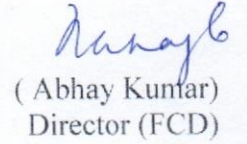 ( Abhay Kumar)
Director (FCD)